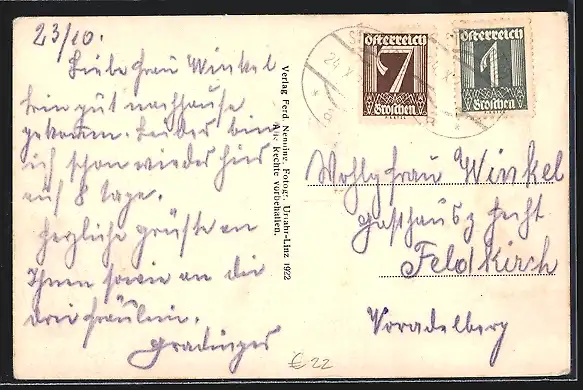 23/10.
Liebe Frau Winkel
bin gut nachhause
gekommen. Leider bin
ich schon wieder hier
auf 8 tage.
herzliche grüße an
Ihnen sowie an die
drei fräulein.
Gradinger
Verlag Ferd. Nenning, Fotogr., Urfahr-Linz 1922
Alle Rechte vorbehalten.
Österreich
7
Groschen
Österreich
1
Groschen
Wohlg frau Winkel
gasthaus z hecht
Feldkirch
Voradelberg
€ 22